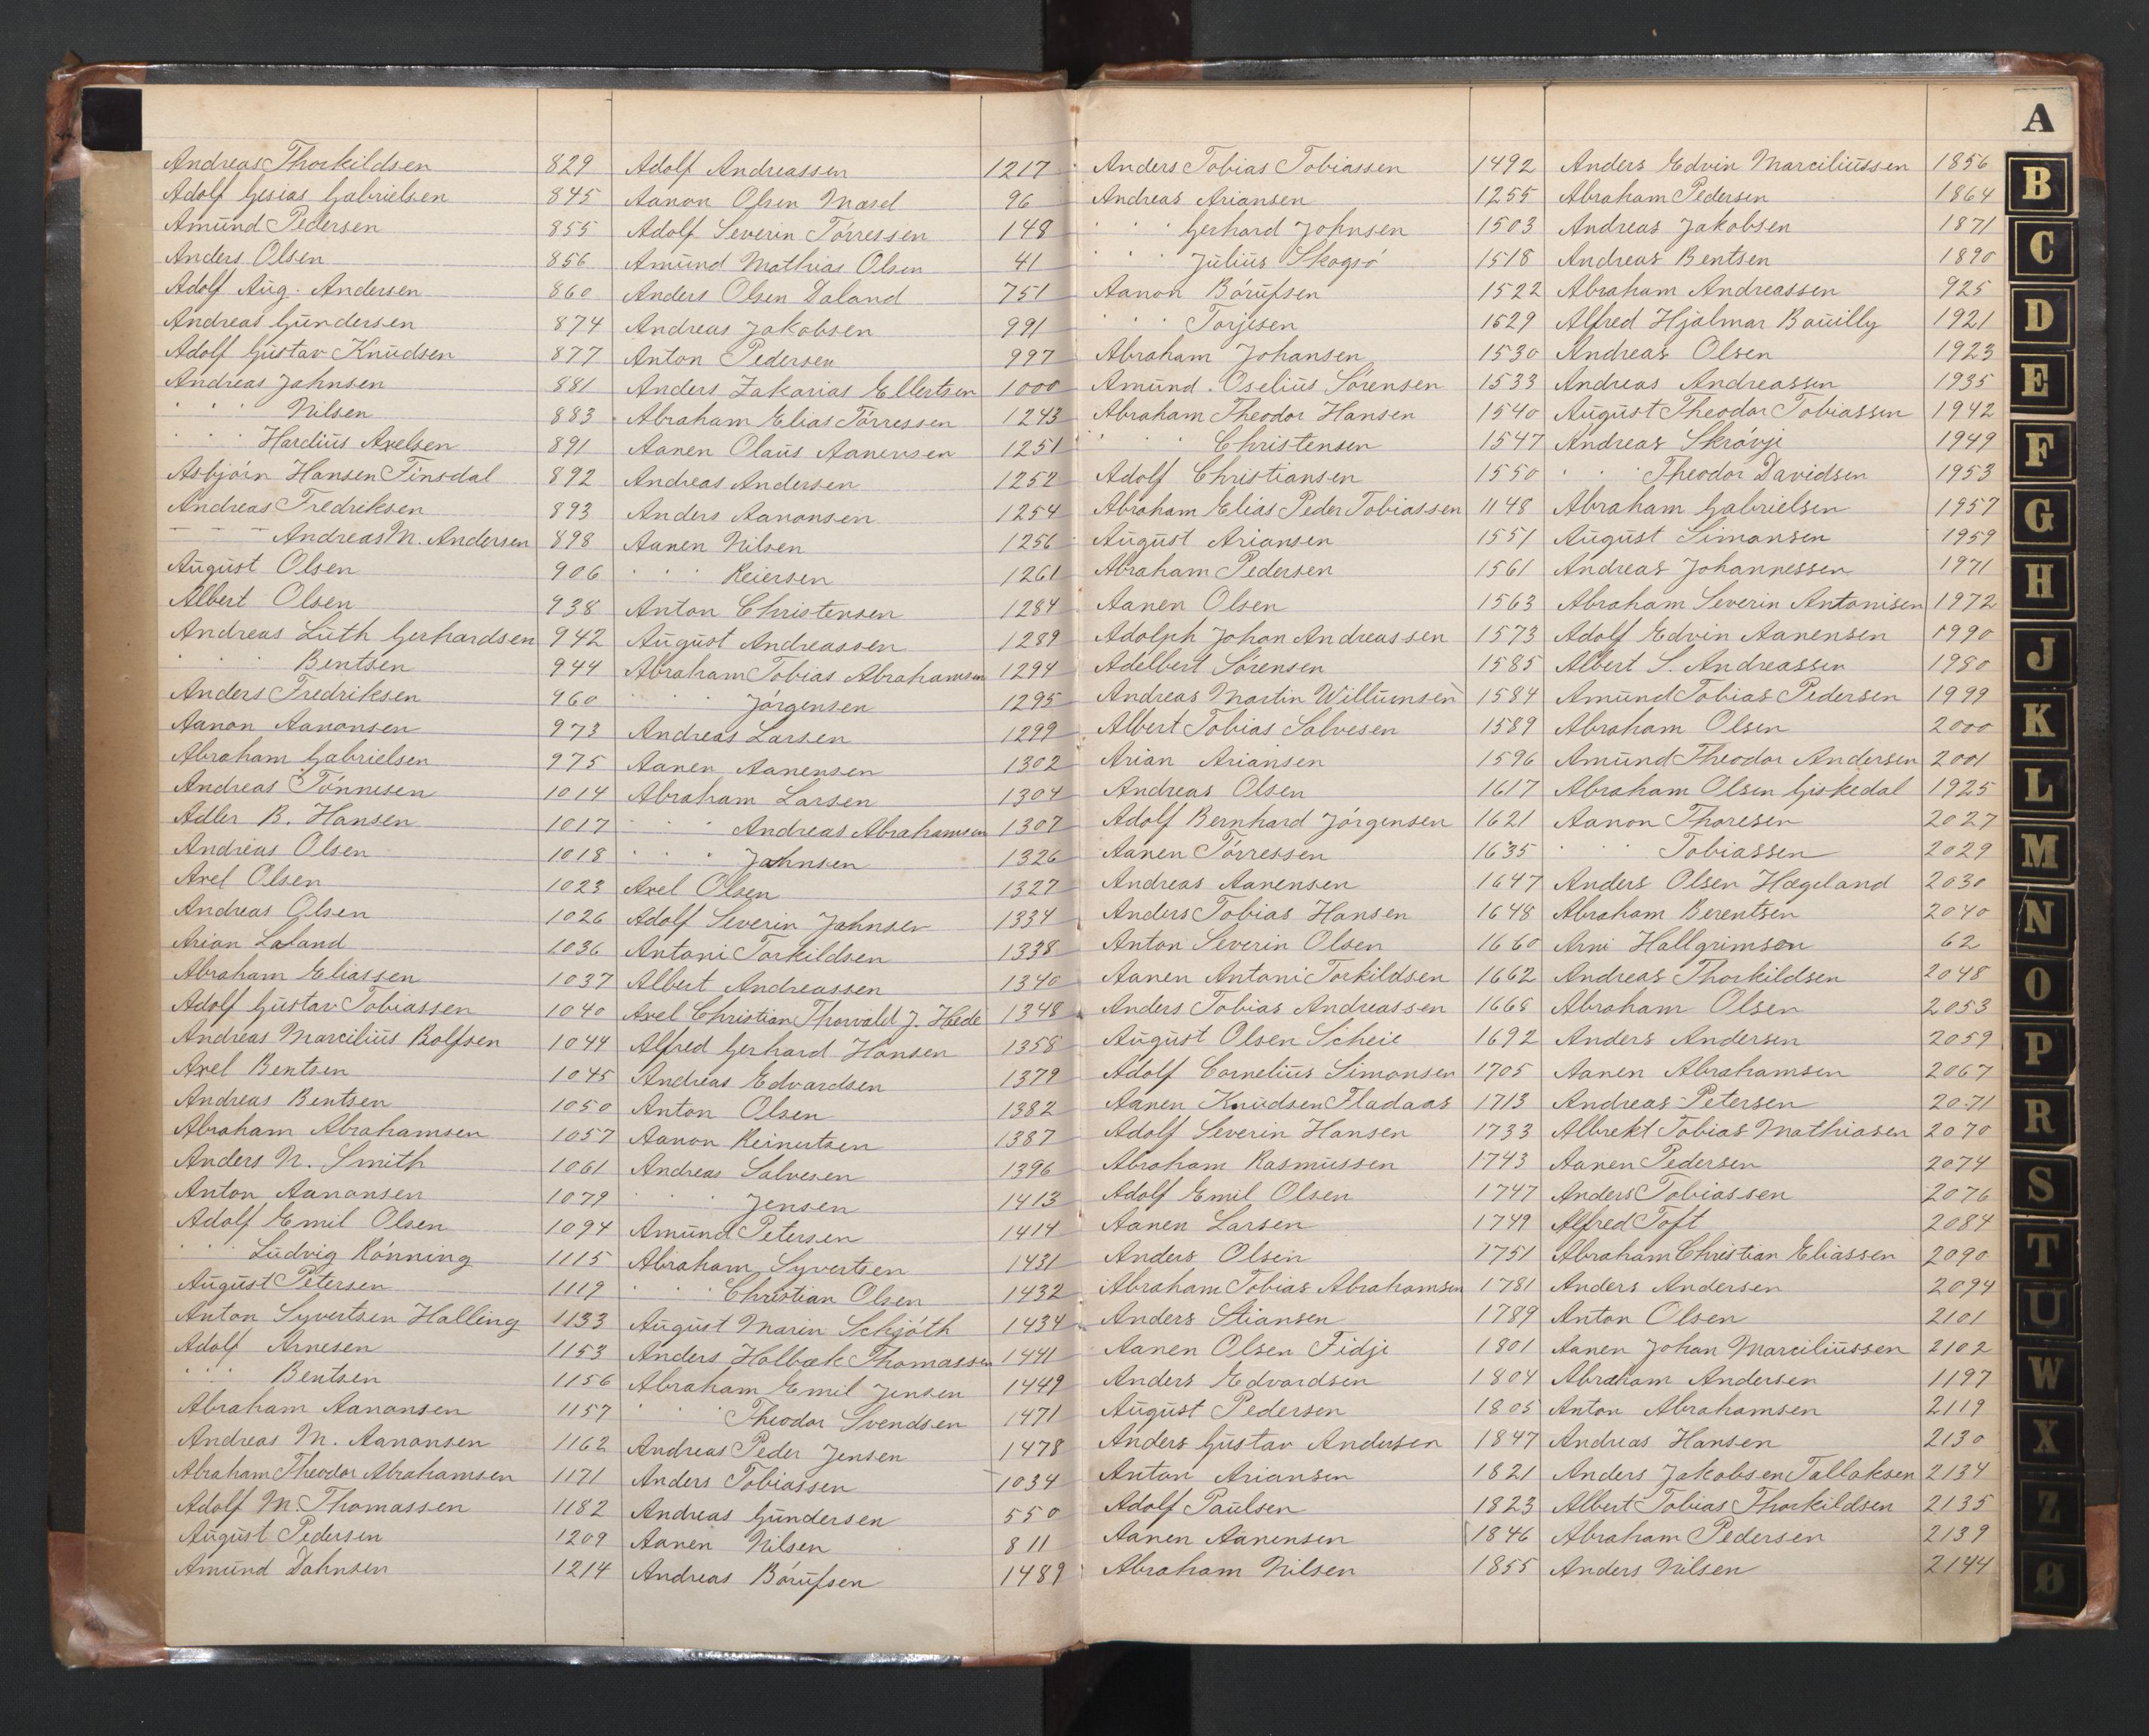 Andreas Thorkildsen 829
Adolf Gesias Gabrielsen 845
Amund Pedersen 855
Anders Olsen 856
Adolf Aug. Andersen 860
Andreas Gundersen 874
Adolf Gustav Knudsen 877
Andreas Jahnsen 881
" " " Nilsen 883
" " " Hardius Axelsen 891
Asbjörn Hansen Finsdal 892
Andreas Fredriksen 893
— — — Andreas M. Andersen 898
August Olsen 906
Albert Olsen 938
Andreas Luth Gerhardsen 942
" " " Bentsen 944
Anders Fredriksen 960
Aanon Aanonsen 973
Abraham Gabrielsen 975
Andreas Tönnesen 1014
Adler B. Hansen 1017
Andreas Olsen 1018
Axel Olsen 1023
Andreas Olsen 1026
Arian Laland 1036
Abraham Eliassen 1037
Adolf Gustav Tobiassen 1040
Andreas Marcilius Rolfsen 1044
Axel Bentsen 1045
Andreas Bentsen 1050
Abraham Abrahamsen 1057
Anders N. Smith 1061
Anton Aanonsen 1079
Adolf Emil Olsen 1094
" " Ludvig Rönning 1115
August Petersen 1119
Anton Syvertsen Halling 1133
Adolf Arnesen 1153
" " " Bentsen 1156
Abraham Aanonsen 1157
Andreas M. Aanonsen 1162
Abraham Theodor Abrahamsen 1171
Adolf M. Thomassen 1182
August Pedersen 1209
Amund Dahnsen 1214
Adolf Andreassen 1217
Aanon Olsen Mosel 96
Adolf Severin Törressen 148
Amund Mathias Olsen 41
Anders Olsen Daland 751
Andreas Jakobsen 991
Anton Pedersen 997
Anders Zakarias Ellertsen 1000
Abraham Elias Törressen 1243
Aanen Olaus Aanensen 1251
Andreas Andersen 1252
Anders Aanonsen 1254
Aanen Nilsen 1256
" " " Reiersen 1261
Anton Christensen 1284
August Andreassen 1289
Abraham Tobias Abrahamsen 1294
" " " Jörgensen 1295
Andreas Larsen 1299
Aanen Aanensen 1302
Abraham Larsen 1304
" " " Andreas Abrahamsen 1307
" " " Jahnsen 1326
Axel Olsen 1327
Adolf Severin Jahnsen 1334
Antoni Torkildsen 1338
Albert Andreassen 1340
Axel Christian Thorvald J. Heede 1348
Alfred Gerhard Hansen 1358
Andreas Edvardsen 1379
Anton Olsen 1382
Aanon Reinertsen 1387
Andreas Salvesen 1396
" " " Jensen 1413
Amund Petersen 1414
Abraham Syvertsen 1431
" " " Christian Olsen 1432
August Marin Schjöth 1434
Anders Holbæk Thomassen 1441
Abraham Emil Jensen 1449
" " " Theodor Svendsen 1471
Andreas Peder Jensen 1478
Anders Tobiassen 1034
Andreas Gundersen 550
Aanen Nilsen 811
Andreas Börufsen 1489
Anders Tobias Tobiassen 1492
Andreas Ariansen 1255
" " " Gerhard Johnsen 1503
" " " Julius Skogsö 1518
Aanon Börufsen 1522
" " " Torjisen 1529
Abraham Johansen 1530
Amund Oselius Sörensen 1533
Abraham Theodor Hansen 1540
" " " Christensen 1547
Adolf Christiansen 1550
Abraham Elias Peder Tobiassen 1148
August Ariansen 1551
Abraham Pedersen 1561
Aanen Olsen 1563
Adolph Johan Andreassen 1573
Adelbert Sörensen 1585
Andreas Martin Willumsen 1584
Albert Tobias Salvesen 1589
Arian Ariansen 1596
Andreas Olsen 1617
Adolf Bernhard Jörgensen 1621
Aanen Törressen 1635
Andreas Aanensen 1647
Anders Tobias Hansen 1648
Anton Severin Olsen 1660
Aanen Antoni Torkildsen 1662
Anders Tobias Andreassen 1668
August Olsen Scheie 1692
Adolf Cornelius Simonsen 1705
Aanen Knudsen Fladaas 1713
Adolf Severin Hansen 1733
Abraham Rasmussen 1743
Adolf Emil Olsen 1747
Aanen Larsen 1749
Anders Olsen 1751
Abraham Tobias Abrahamsen 1781
Anders Stiansen 1789
Aanen Olsen Fidje 1801
Anders Edvardsen 1804
August Pedersen 1805
Anders Gustav Andersen 1847
Anton Ariansen 1821
Adolf Paulsen 1823
Aanen Aanensen 1846
Abraham Nilsen 1855
Anders Edvin Marciliussen 1856
Abraham Pedersen 1864
Andreas Jakobsen 1871
Andreas Bentsen 1890
Abraham Andreassen 925
Alfred Hjalmar Bouilly 1921
Andreas Olsen 1923
Andreas Andreassen 1935
August Theodor Tobiassen 1942
Andreas Skrövje 1949
" " " Theodor Davidsen 1953
Abraham Gabrielsen 1957
August Simonsen 1959
Andreas Johannessen 1971
Abraham Severin Antonisen 1972
Adolf Edvin Aanensen 1990
Albert S. Andreassen 1980
Amund Tobias Pedersen 1999
Abraham Olsen 2000
Amund Theodor Andersen 2001
Abraham Olsen Giskedal 1925
Aanon Thoresen 2027
" " " Tobiassen 2029
Anders Olsen Hægeland 2030
Abraham Berentsen 2040
Arni Hallgrimson 62
Andreas Thorkildsen 2048
Abraham Olsen 2053
Anders Andersen 2059
Aanen Abrahamsen 2067
Andreas Petersen 2071
Albrekt Tobias Mathiasen 2070
Aanen Pedersen 2074
Anders Tobiassen 2076
Alfred Toft 2084
Abraham Christian Eliassen 2090
Anders Andersen 2094
Anton Olsen 2101
Aanen Johan Marciliussen 2102
Abraham Andersen 1197
Anton Abrahamsen 2119
Andreas Hansen 2130
Anders Jakobsen Tallaksen 2134
Albert Tobias Thorkildsen 2135
Abraham Pedersen 2139
Anders Nilsen 2144
A
B
C
D
E
F
G
H
J
K
L
M
N
O
P
R
S
T
U
W
X
Z
Ø